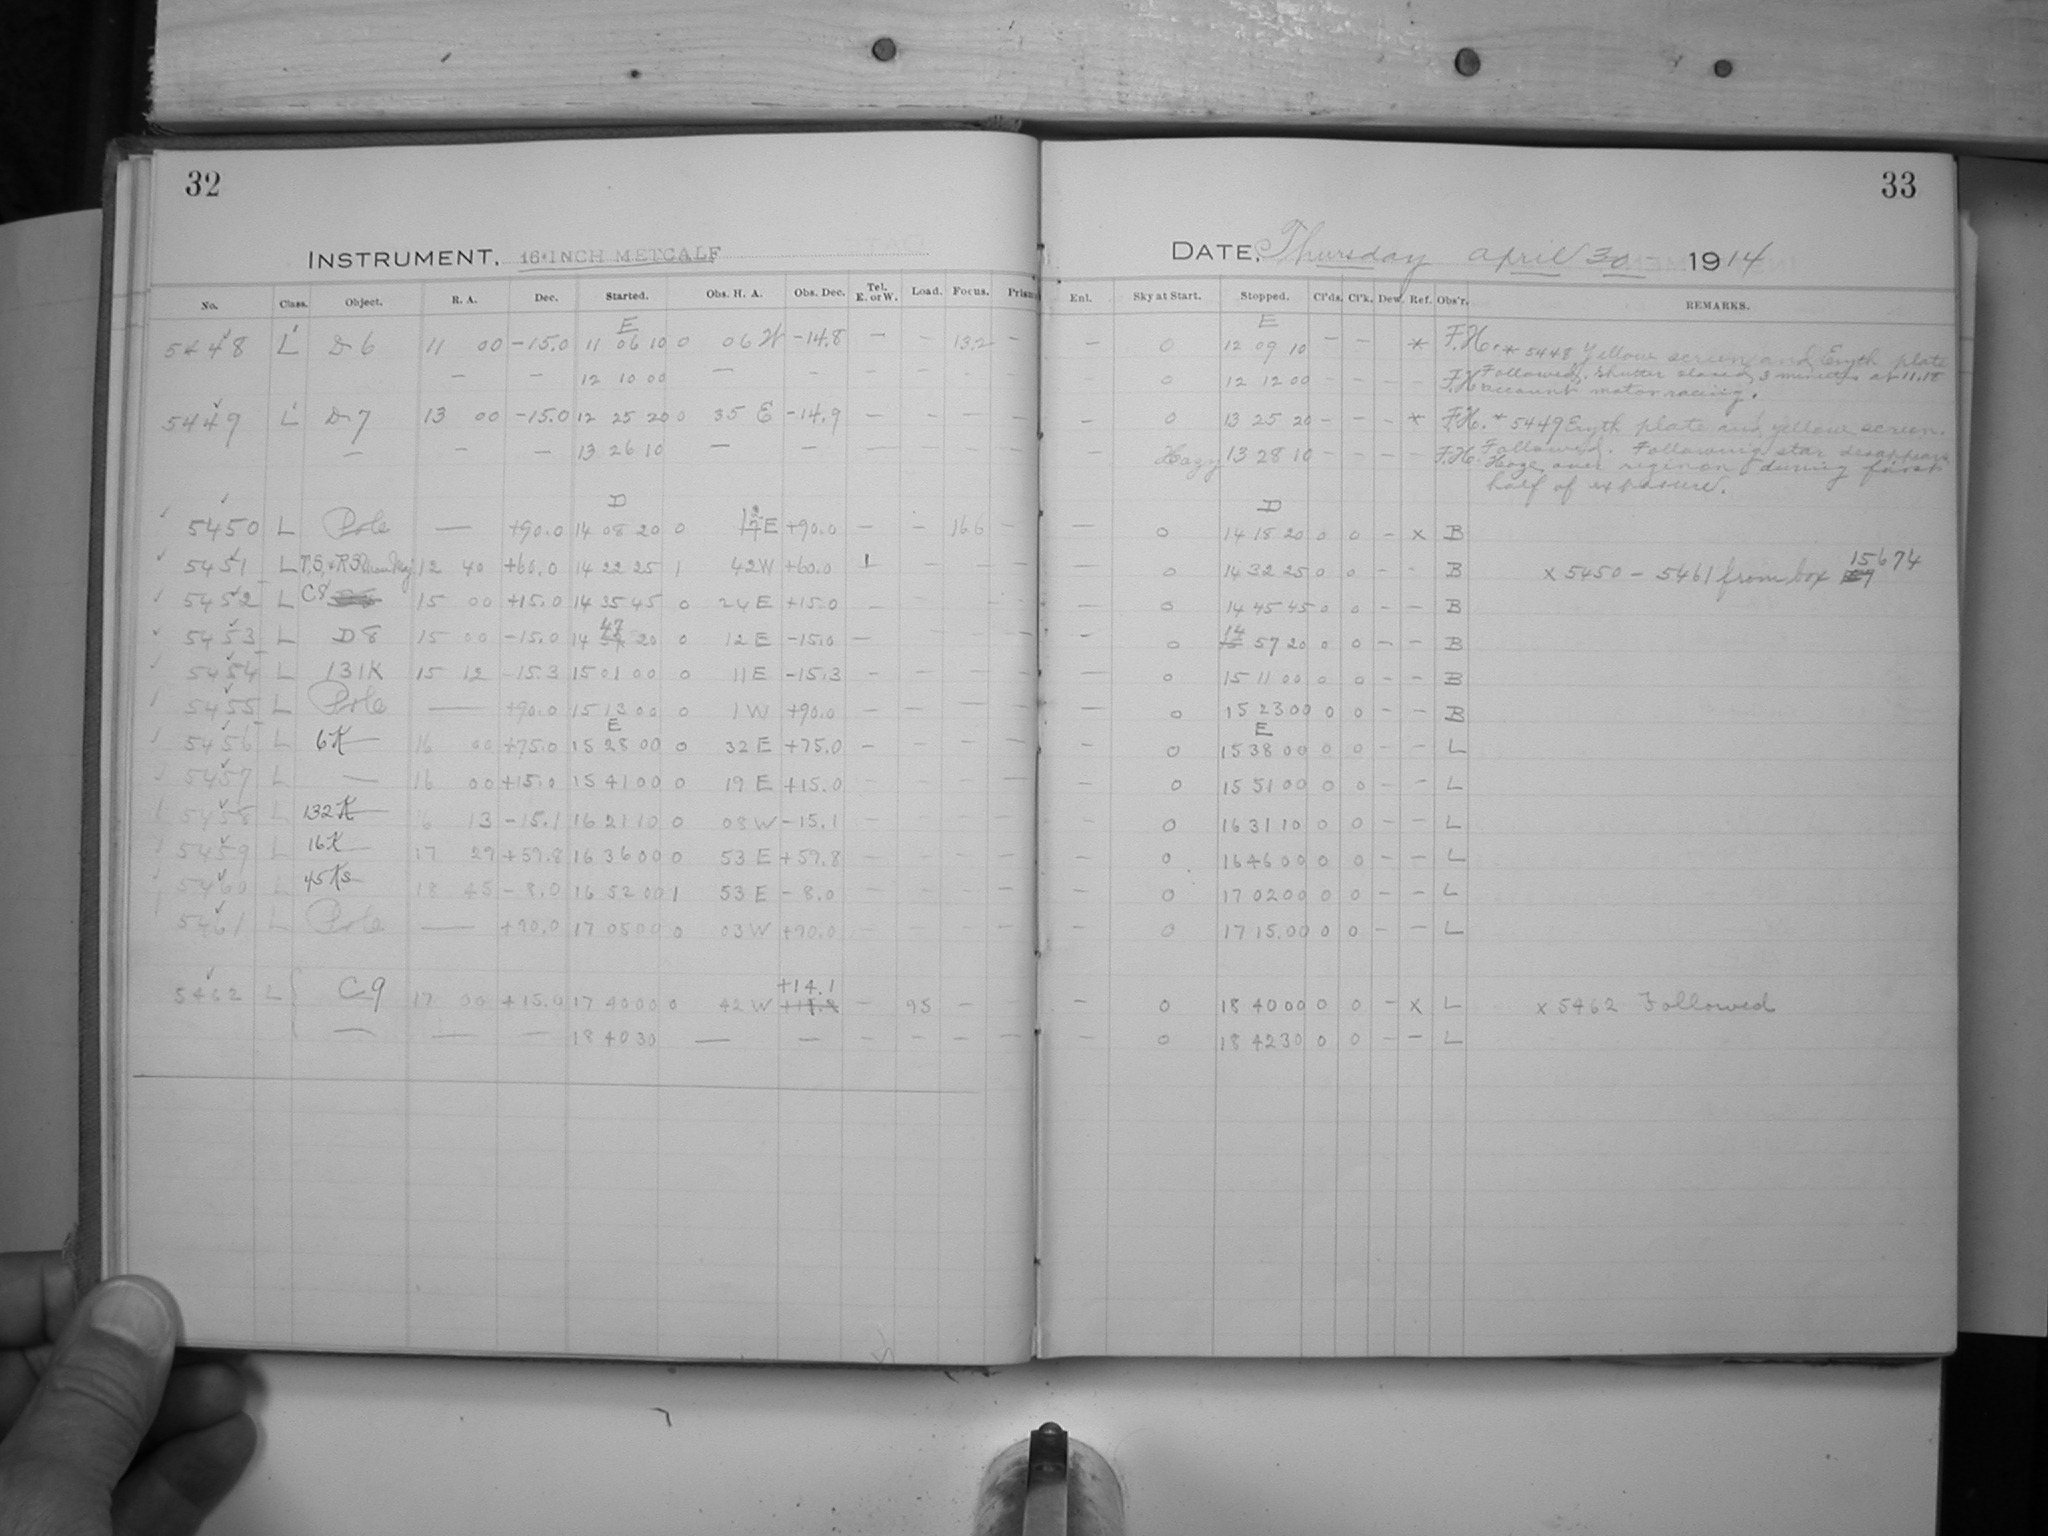 32
33
INSTRUMENT. 16-INCH METCALF
DATE. Thursday April 30 1914
No. Class. Object. R. A. Dec. Started. Obs. H. A. Obs. Dec. Tel. E. or W. Load. Focus. Prism Enl. Sky at Start. Stopped. Cl'ds. Cl'k. Dew. Ref. Obs'r. REMARKS.
E E
5448 L D6 11 00 -15.0 11 06 10 0 06 W -14.8 — — 13.2 — — 0 12 09 10 — — * F.H. * 5448 Yellow screen and Eryth plate
— — 12 10 00 — — — — — — 0 12 12 00 — — — — F.H. Followed. Shutter closed 3 minutes at 11.18
account motor racing.
5449 L D7 13 00 -15.0 12 25 20 0 35 E -14.9 — — — — — 0 13 25 20 — — — * F.H. * 5449 Eryth plate and yellow screen.
— — — 13 26 10 — — — — — — — Hazy 13 28 10 — — — — F.H. Followed. Following star disappears
Haze over reginon during first
half of exposure.
D D
5450 L Pole — +90.0 14 08 20 0 E +90.0 — — 16.6 — — 0 14 18 20 0 0 — x B
5451 L T,S,+R3 12 40 +60.0 14 22 25 1 42 W +60.0 — — 0 14 32 25 0 0 — — B x 5450 - 5461 from box 15674
5452 L C8 15 00 +15.0 14 35 45 0 24 E +15.0 — — — — — 0 14 45 45 0 0 — — B
5453 L D8 15 00 -15.0 14 47 20 0 12 E -15.0 — — — — — 0 14 57 20 0 0 — — B
5454 L 131K 15 12 -15.3 15 01 00 0 11 E -15.3 — — — — — 0 15 11 00 0 0 — — B
5455 L Pole — +90.0 15 13 00 0 1 W +90.0 — — — — — 0 15 23 00 0 0 — — B
E E
5456 L 6K 16 00 +75.0 15 28 00 0 32 E +75.0 — — — — — 0 15 38 00 0 0 — — L
5457 L — 16 00 +15.0 15 41 00 0 19 E +15.0 — — — — — 0 15 51 00 0 0 — — L
5458 L 132K 16 13 -15.1 16 21 10 0 08 W -15.1 — — — — — 0 16 31 10 0 0 — — L
5459 L 16K 17 29 +59.8 16 36 00 0 53 E +59.8 — — — — — 0 16 46 00 0 0 — — L
5460 L 45Ks 18 45 -8.0 16 52 00 1 53 E -8.0 — — — — — 0 17 02 00 0 0 — — L
5461 L Pole — +90.0 17 05 00 0 03 W +90.0 — — — — — 0 17 15.00 0 0 — — L
5462 L C9 17 00 +15.0 17 40 00 0 42 W +14.1 — 95 — — — 0 18 40 00 0 0 — x L x 5462 Followed
— — — 18 40 30 — — — — — — — 0 18 42 30 0 0 — — L